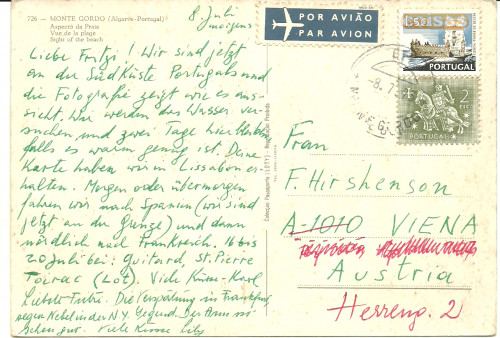 726 — MONTE GORDO (Algarve-Portugal)
Aspecto da Praia
Vue de la plage
Sight of the beach
8. Juli
morgens
Liebe Fritzi! Wir sind jetzt
an der Südküste Portugals und
die Fotografie zeigt wie es aus-
sieht. Wir werden das Wasser ver-
suchen und zwei Tage hier bleiben
falls es warm genug ist. Deine
Karte haben wir in Lissabon er-
halten. Morgen oder übermorgen
fahren wir nach Spanien (wir sind
jetzt an der Grenze) und dann
nördlich nach Frankreich. 16 bis
20 Juli bei: Guitard, St. Pierre
Toirac (Lot). Viele Küsse-Karl
Liebste Fritzi. Die Verspätung in Frankfurt
wegen Nebel in der N.Y. Gegend.
Gehen gut. Viele Küsse
POR AVIÃO
PAR AVION
PORTUGAL
2
PORTUGAL
Frau
F. Hirshenson
A-1010 VIENA
Austria
Herreng. 2